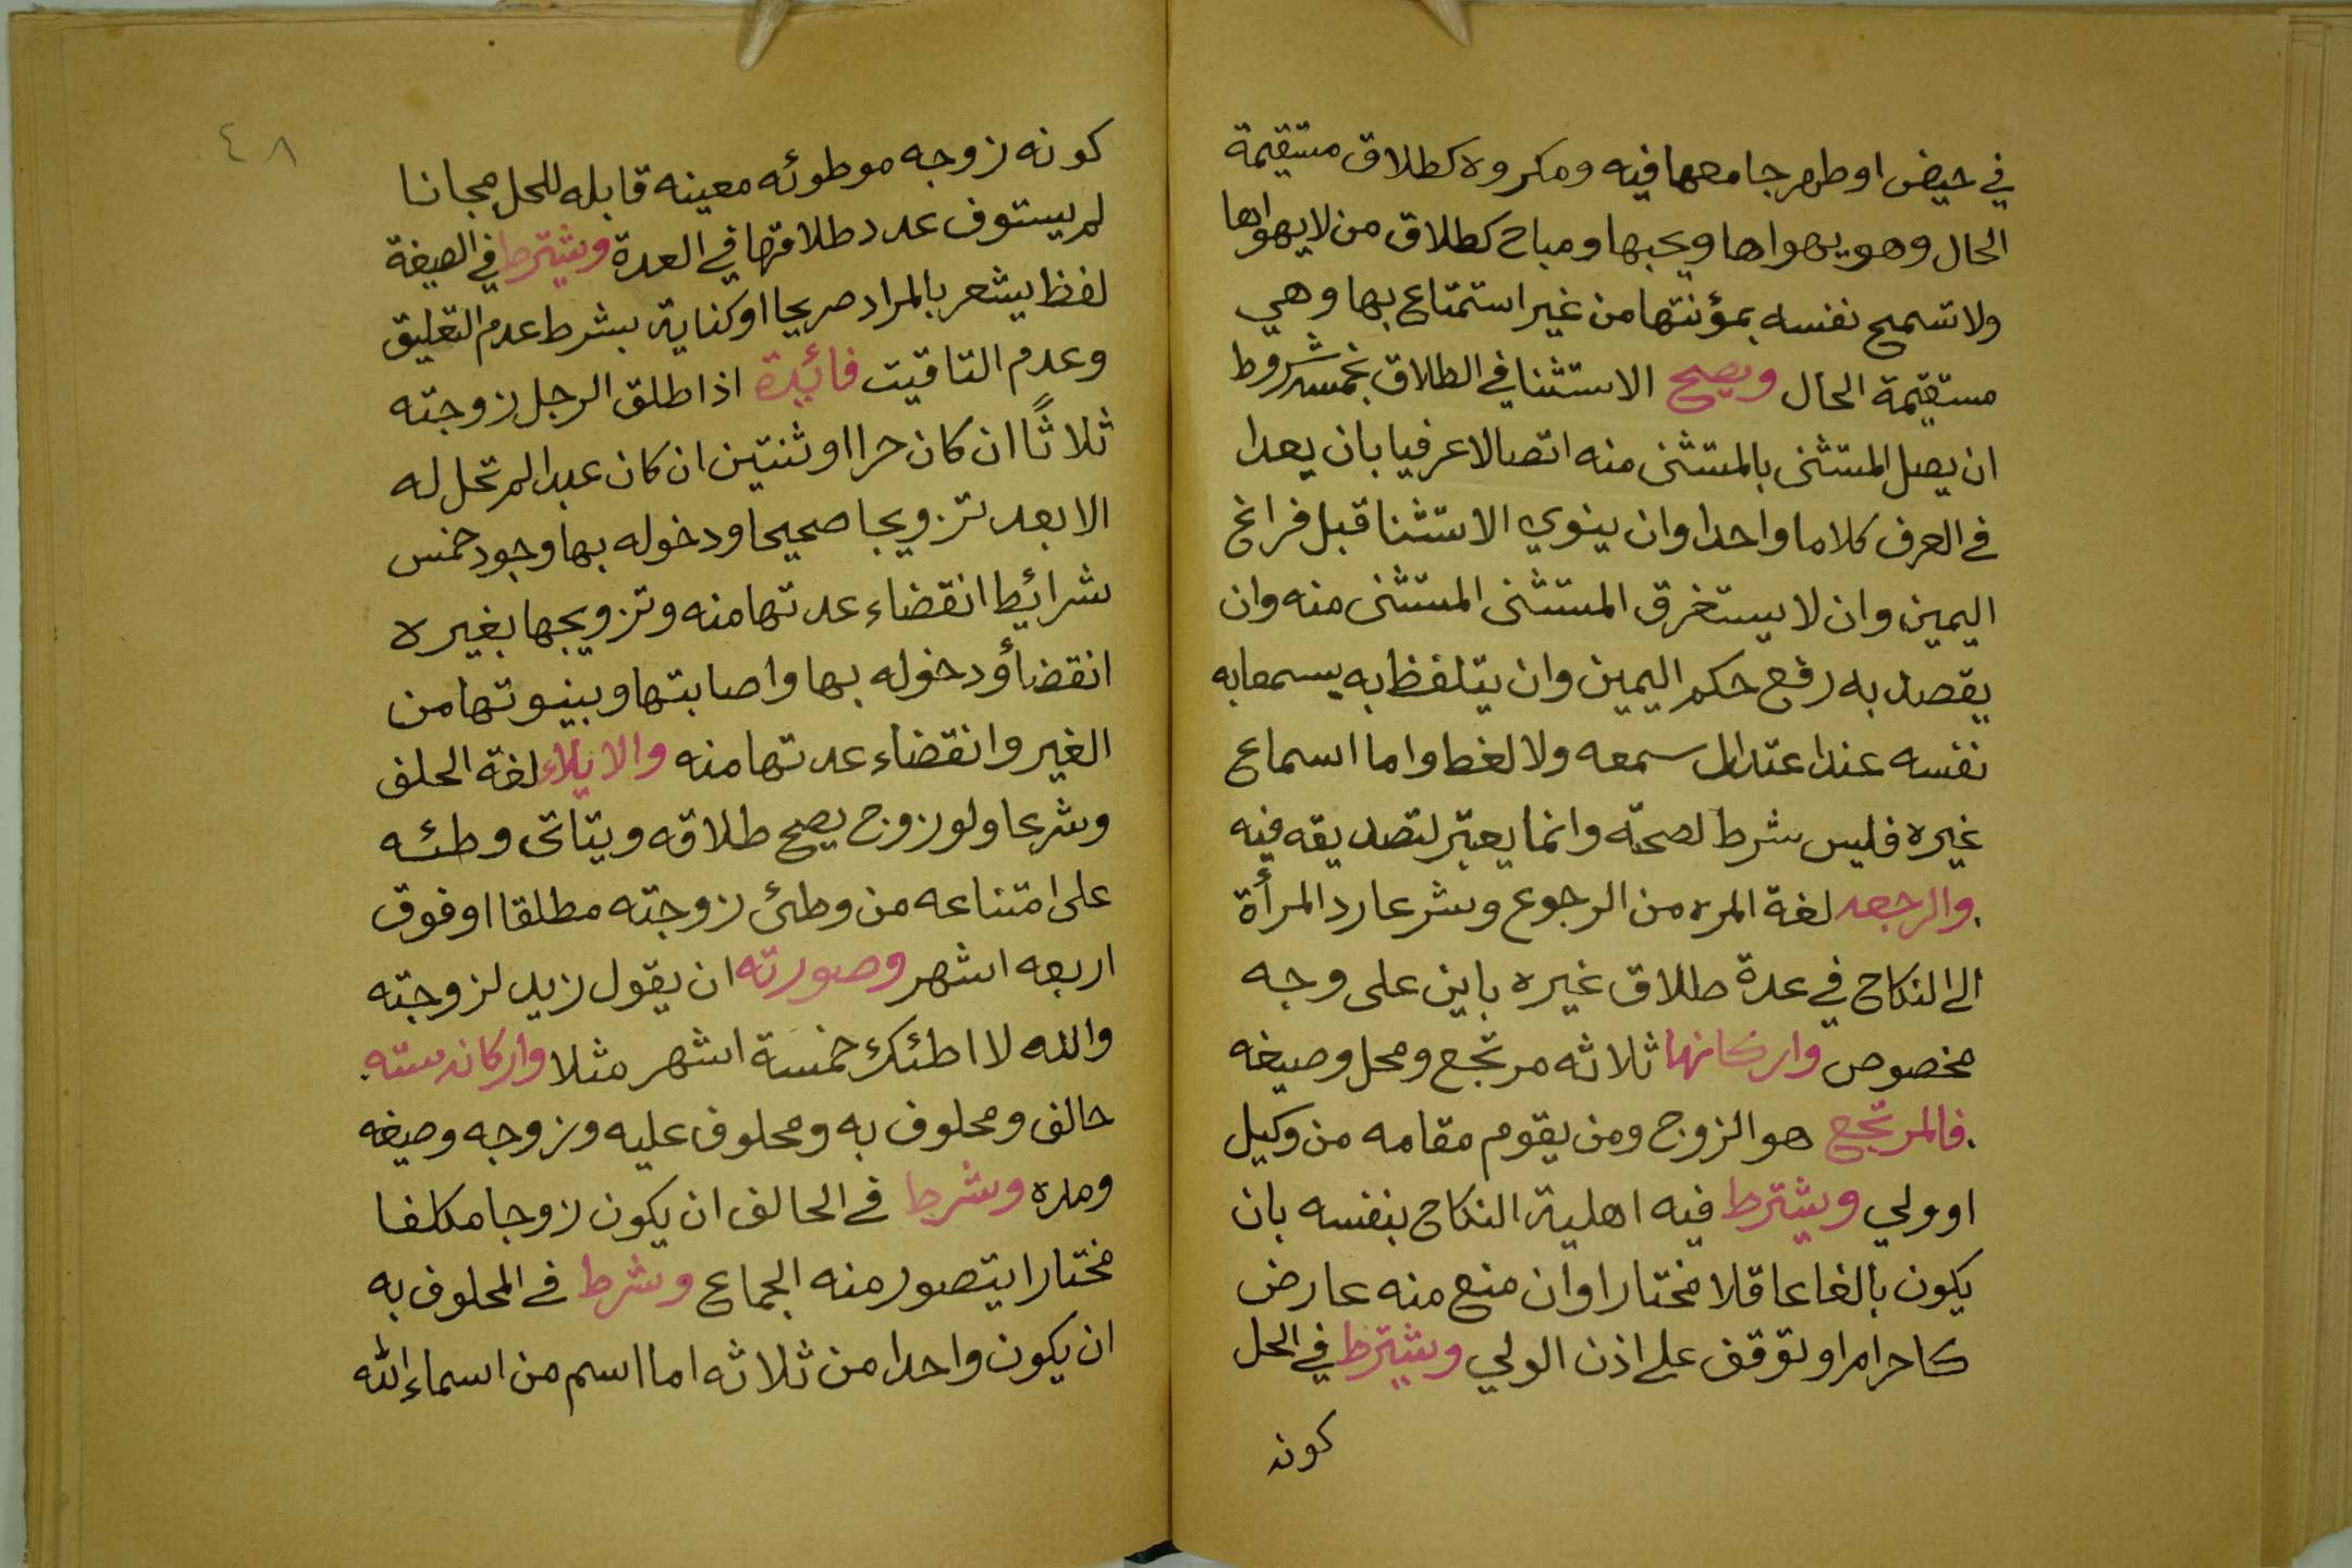 في حيض او طهر جامعها فيه ومكروه كطلاق مستقيمة
الحال وهو يهواها ويحبها ومباح كطلاق من لا يهواها
ولا تسمح نفسه بمؤنتها من غير استمتاع بها وهي
مستقيمة الحال ويصح الاستثنا في الطلاق بخمسه شروط
ان يصل المستثنى بالمستثنى منه اتصالا عرفيا بان يعدا
في العرف كلاما واحدا وان ينوي الاستثنا قبل فراغ
اليمين وان لا يستغرق المستثنى المستثنى منه وان
يقصد به رفع حكم اليمين وان يتلفظ به يسمعا به
نفسه عند اعتدال سمعه ولا لغط واما اسماع
غيره فليس شرط لصحته وانما يعتبر لتصديقه فيه
والرجعه لغة المره من الرجوع وشرعا رد المرأة
الى النكاح في عدة طلاق غيره باين على وجه
مخصوص واركانها ثلاثه مرتجع ومحل وصيغه
فالمرتجع هو الزوج ومن يقوم مقامه من وكيل
او ولي ويشترط فيه اهلية النكاح بنفسه بان
يكون بالغا عاقلا مختارا وان منع منه عارض
كاحرام او توقف على اذن الولي ويشترط في المحل
كونه
٤٨
كونه زوجه موطوئه معينه قابله للحل مجانا
لم يستوف عدد طلاقها في العدة ويشترط في الصيغة
لفظ يشعر بالمراد صريحا او كناية بشرط عدم التعليق
وعدم التاقيت فائيدة اذا طلق الرجل زوجته
ثلاثًا ان كان حرا او ثنتين ان كان عبدا لم تحل له
الا بعد تزويجا صحيحا ودخوله بها وجود خمس
شرائيط انقضاء عدتها منه وتزويجها بغيره
انقضأ ودخوله بها واصابتها وبينوتها من
الغير وانقضاء عدتها منه والايلاء لغة الحلف
وشرعا ولو زوج يصح طلاقه ويتاتى وطئه
على امتناعه من وطئ زوجته مطلقا او فوق
اربعه اشهر وصورته ان يقول زيد لزوجته
والله لا اطئك خمسة اشهر مثلا واركانه سته
حالف ومحلوف به ومحلوف عليه وزوجه وصيغه
ومده وشرط في الحالف ان يكون زوجا مكلفا
مختارا يتصور منه الجماع وشرط في المحلوف به
ان يكون واحدا من ثلاثه اما اسم من اسماء الله